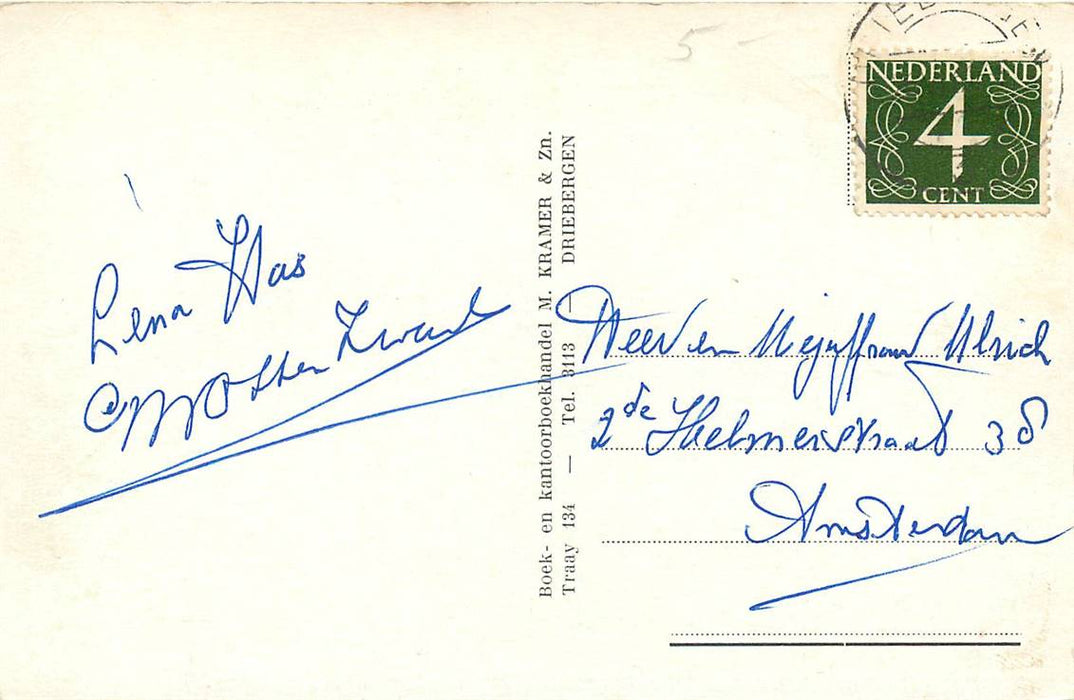 5 -
NEDERLAND
4
CENT
Lena Was
Boek- en kantoorboekhandel M. KRAMER & Zn.
Traay 134 — Tel. 3113 — DRIEBERGEN
Heer en Mejuffrouw Ulrich
2de Helmersstraat 38
Amsterdam